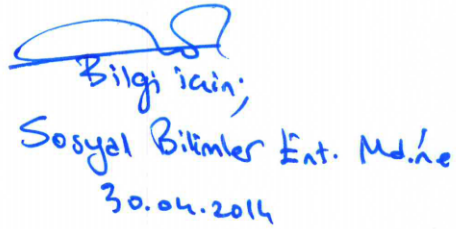 Bilgi için;
Sosyal Bilimler Ent. Md.ne
30.04.2014